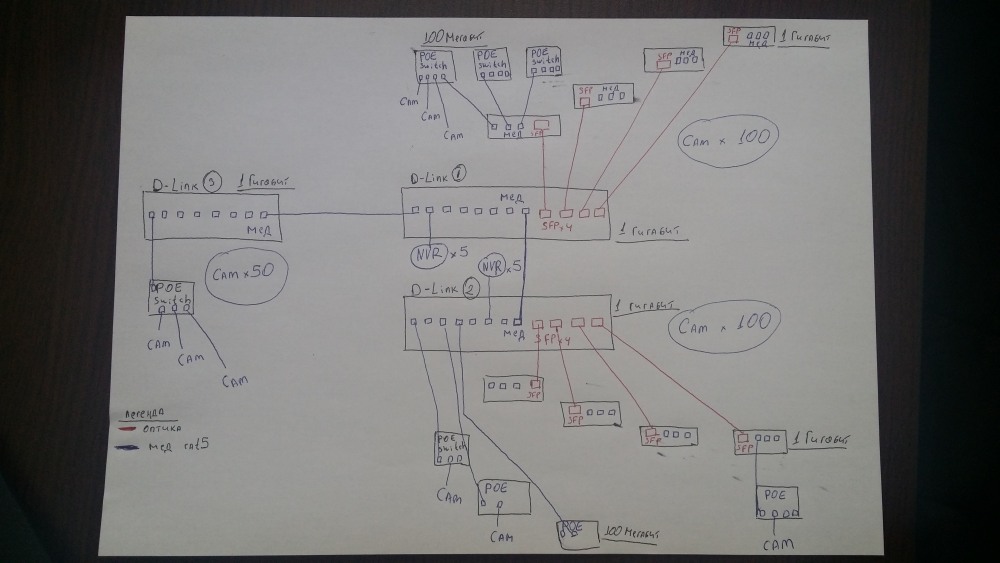 100 Мегабит
POE
Switch
POE
Switch
POE
Switch
CAM
CAM
CAM
мед
SFP
SFP
мед
SFP
мед
SFP
мед
1 Гигабит
CAM x 100
D-Link 3
1 Гигабит
мед
D-Link 1
мед
SFP x 4
1 Гигабит
CAM x 50
NVR x 5
NVR x 5
POE
Switch
CAM
CAM
CAM
D-Link 2
мед
SFP x 4
1 Гигабит
CAM x 100
SFP
SFP
SFP
SFP
1 Гигабит
Легенда
оптика
мед cat5
POE
Switch
CAM
POE
CAM
POE
100 Мегабит
POE
CAM